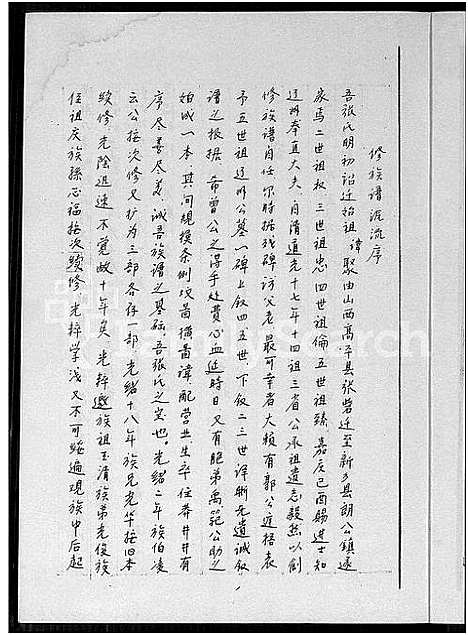 修族谱源流序
吾张氏明初诏迁始祖讳聚由山西高平县张砦迁至新乡县朗公鎮遂
家焉二世祖权三世祖忠四世祖倫五世祖臻嘉庆己酉赐进士知
辽州奉直大夫自清道光十七年十四祖三省公承祖遗志毅然以創
修族谱自任尔時据残碑访父老最可幸者大赖有郭公庭梧表
予五世祖辽州公墓一碑上叙四五世下叙二三世详晰无遗诚叙
谱之根据命曾公之得手处費心血延時日又有胞弟禹範公助之
始成一本其间規模条例坟啚横啚諱配营业生卒位葬井井有
序尽美尽善诚吾族谱之基础吾张氏之宝也光緒二年族伯凌
云公按次修又扩为三部各存一部光緒十八年族兄光华按旧本
续修光陰迅速不覚故十年矣光辞邀族祖玉清族弟光俊族
侄祖庆族孫心福按次续修光辞学浅又不可能遍现族中后起